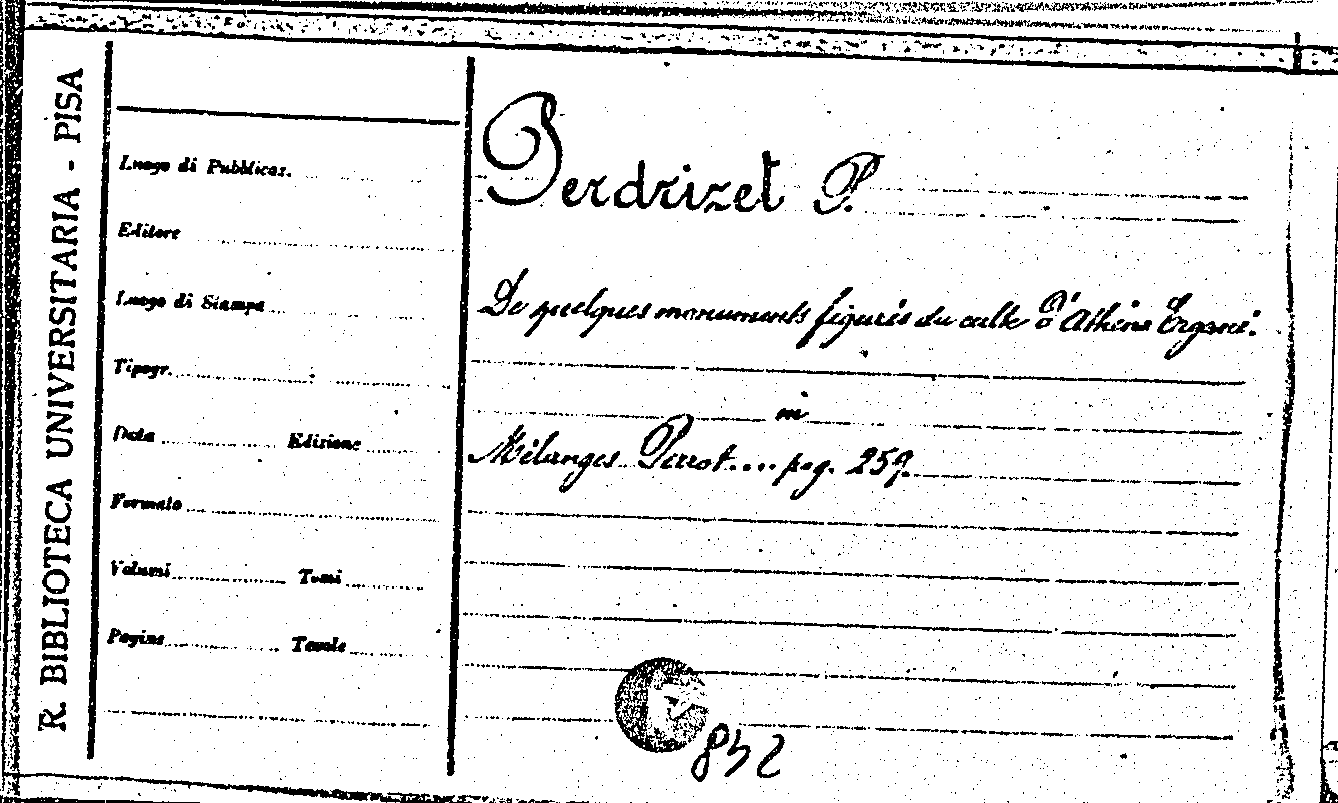 R. BIBLIOTECA UNIVERSITARIA - PISA
Luogo di Pubblicaz.
Editore
Luogo di Stampa
Tipogr.
Data Edizione
Formato
Volumi Tomi
Pagine Tavole
Perdrizet P.
De quelques monuments figurés du culte d'Athéna Ergané.
in
Mélanges Perrot.... pag. 259.
842